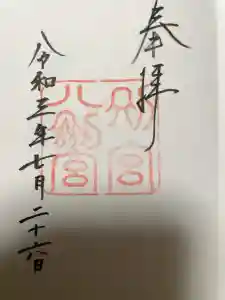 奉拝
八剱宮
令和三年七月二十六日